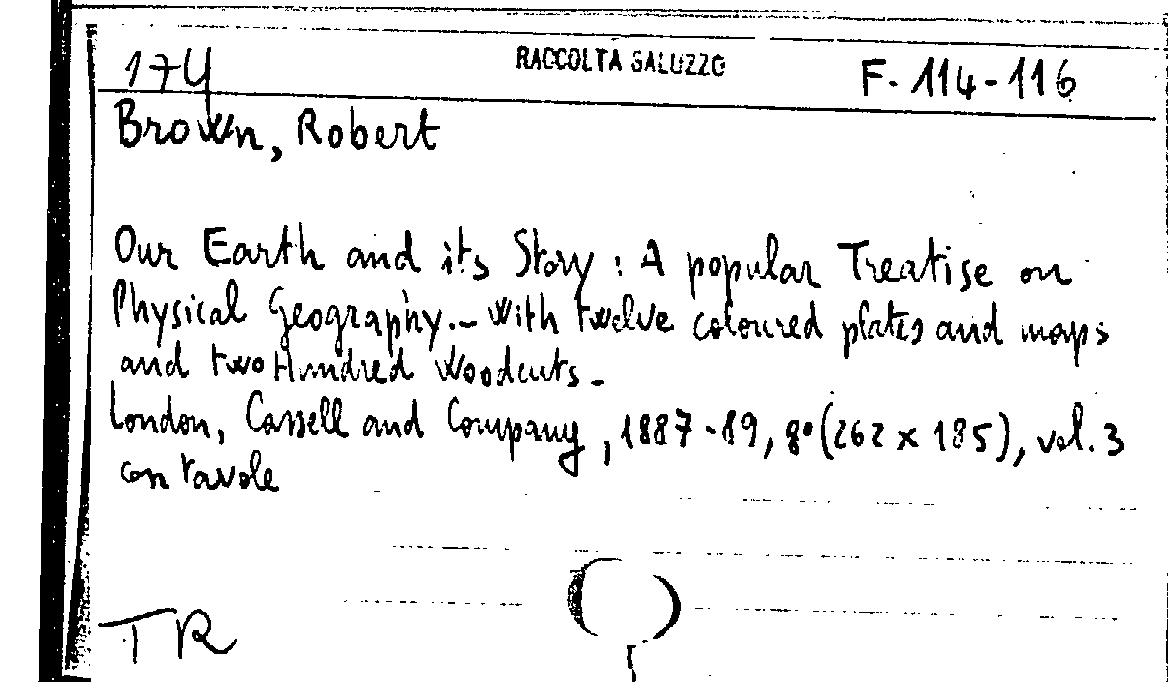 174 RACCOLTA SALUZZO F. 114-116
Brown, Robert
Our Earth and its Story : A popular Treatise on
Physical Geography.- With twelve coloured plates and maps
and two Hundred Woodcuts.-
London, Cassell and Company, 1887-89, 8° (262 x 185), vol. 3
con tavole
TR